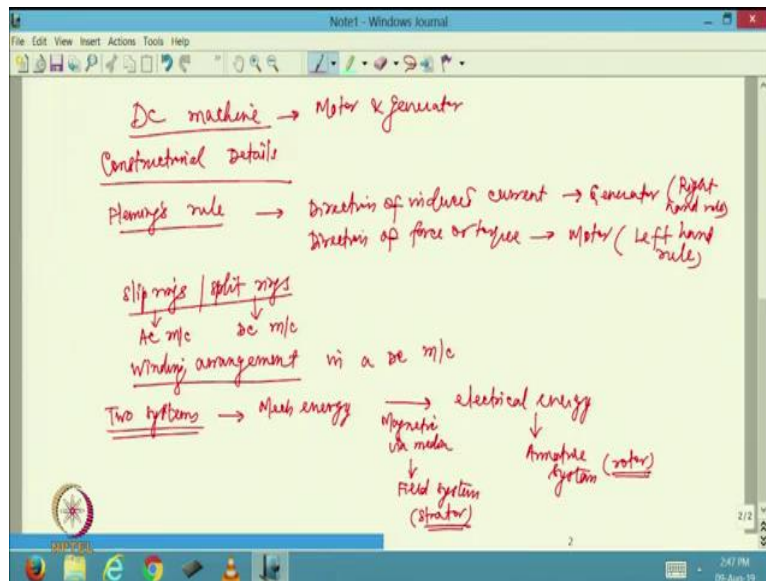 Note1 - Windows Journal
File Edit View Insert Actions Tools Help
DC machine → Motor & Generator
Constructional Details
Fleming's rule → Direction of induced current → Generator (Right hand rule)
Direction of force or torque → Motor (Left hand rule)
slip rings / split rings
↓ ↓
AC m/c DC m/c
Winding arrangement in a DC m/c
Two systems → Mech energy → electrical energy
Magnetic via media
↓
Field system
(Strator)
↓
Armature system (rotor)
NPTEL
2
2/2
2:47 PM
09-Aug-19